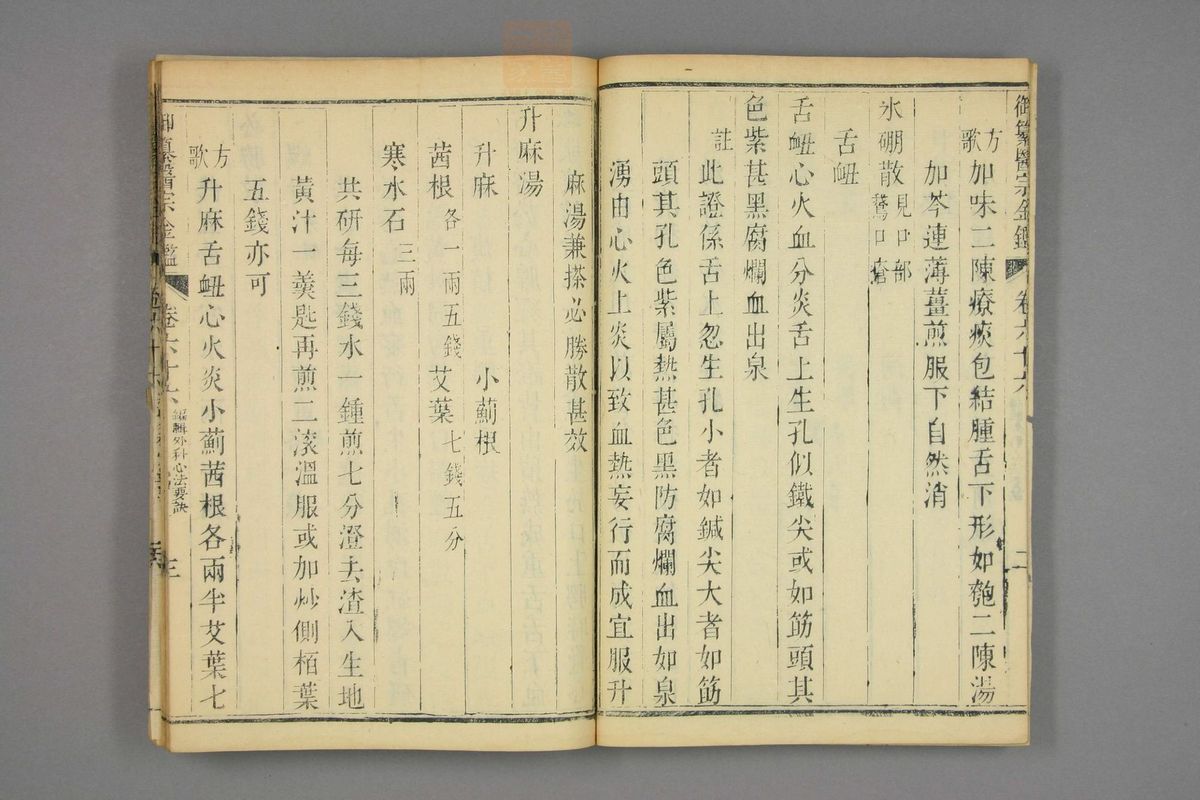 御纂醫宗金鑑 卷六十六 二
方歌 加味二陳療痰包結腫舌下形如匏二陳湯
加芩連薄薑煎服下自然消
氷硼散 見口部鵞口瘡
舌衄
舌衄心火血分炎舌上生孔似鐵尖或如筯頭其
色紫甚黑腐爛血出泉
註 此證係舌上忽生孔小者如鍼尖大者如筯
頭其孔色紫屬熱甚色黑防腐爛血出如泉
湧由心火上炎以致血熱妄行而成宜服升
麻湯兼搽必勝散甚效
升麻湯
升麻 小薊根
茜根 各一兩五錢 艾葉 七錢五分
寒水石 三兩
共研每三錢水一鍾煎七分澄去渣入生地
黃汁一羹匙再煎二滚溫服或加炒側栢葉
五錢亦可
方歌 升麻舌衄心火炎小薊茜根各兩半艾葉七
御纂醫宗金鑑 卷六十六 編輯外科心法要訣 三